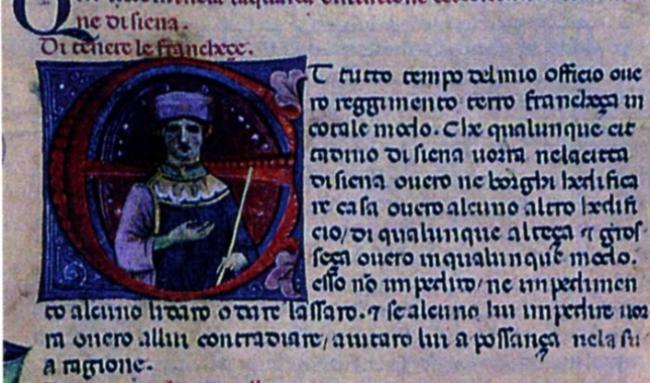 ne di siena.
Di tenere le francheçe.
E t tutto tempo del mio officio oue
ro reggimento terro francheça in
cotale modo. Che qualunque cit
tadino di siena uorra nela citta
di siena ouero ne borghi hedifica
re casa ouero alcuno altro hedifi
cio/ di qualunque alteça ⁊ gros
seça ouero in qualunque modo.
esso nō impediro/ ne impedimen
to alcuno li daro o dare lassaro. ⁊ se alcuno lui impedire uor
ra ouero allui contradiare/ aiutaro lui a possança nela su
a ragione.